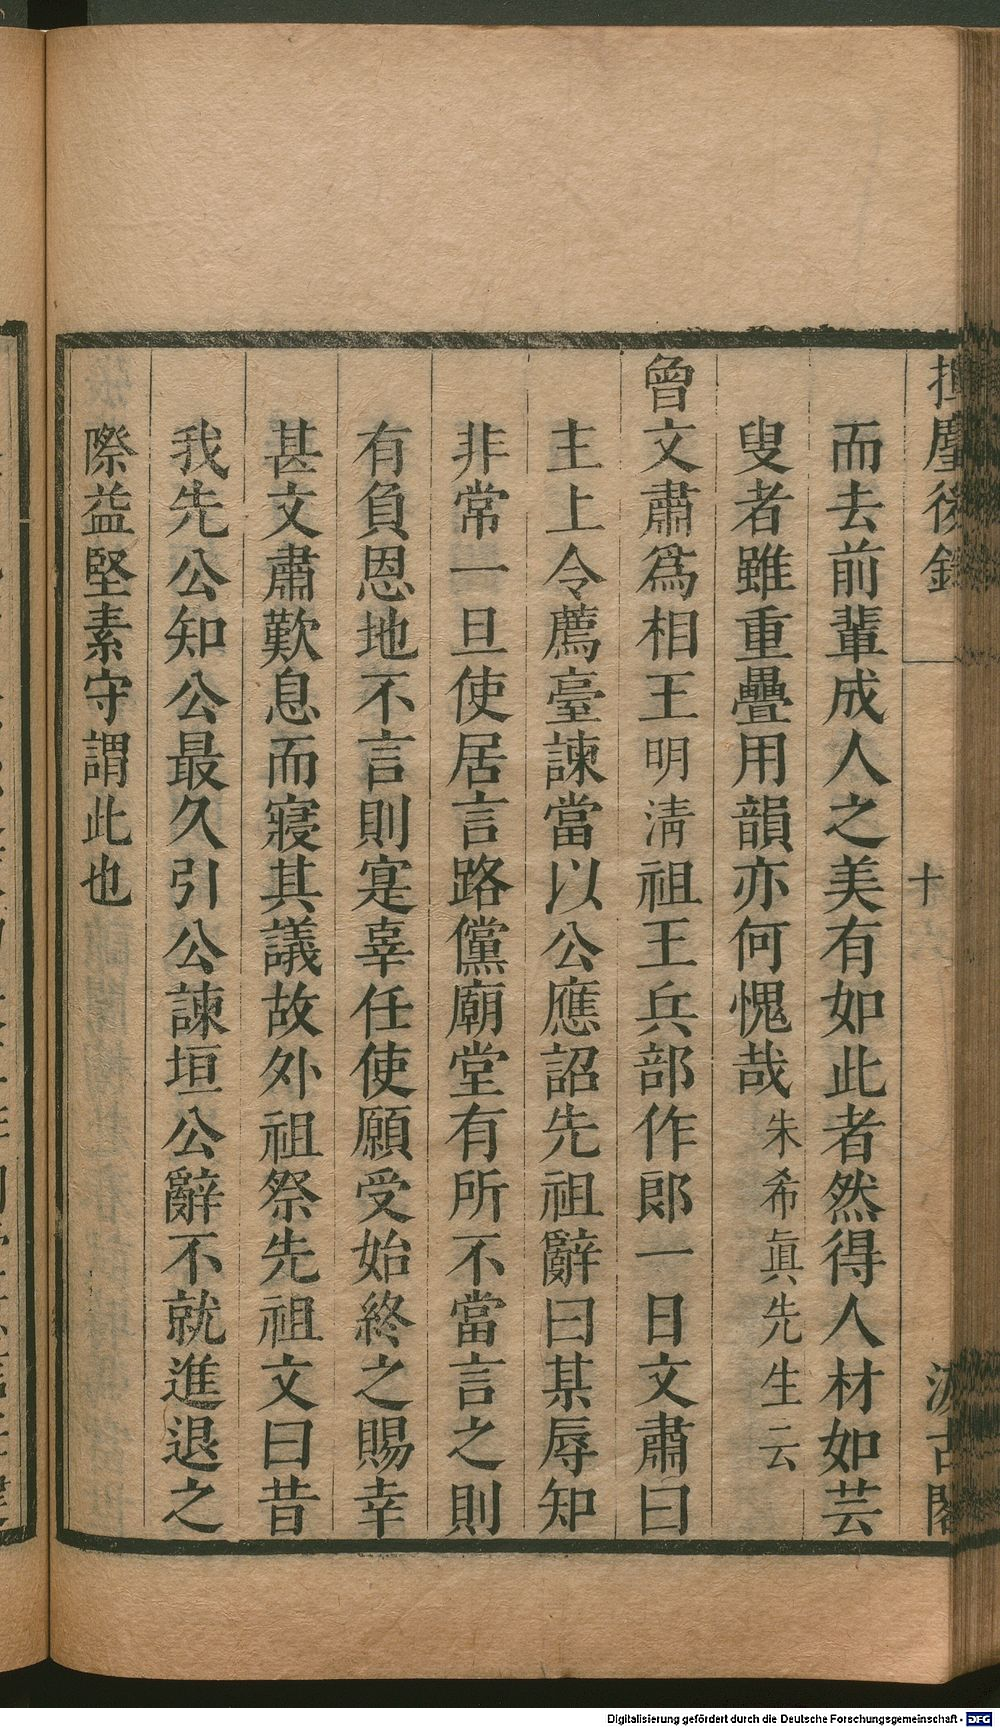 揮麈後錄
十
汲古閣
而去前輩成人之美有如此者然得人材如芸
叟者雖重疊用韻亦何愧哉朱希眞先生云
曾文肅爲相王明淸祖王兵部作郎一日文肅曰
主上令薦臺諫當以公應詔先祖辭曰某辱知
非常一旦使居言路儻廟堂有所不當言之則
有負恩地不言則寔辜任使願受始終之賜幸
甚文肅歎息而寢其議故外祖祭先祖文曰昔
我先公知公最久引公諫垣公辭不就進退之
際益堅素守謂此也
Digitalisierung gefördert durch die Deutsche Forschungsgemeinschaft - DFG